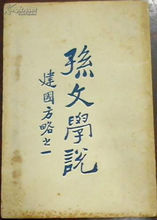 孫文學説
建國方略之一